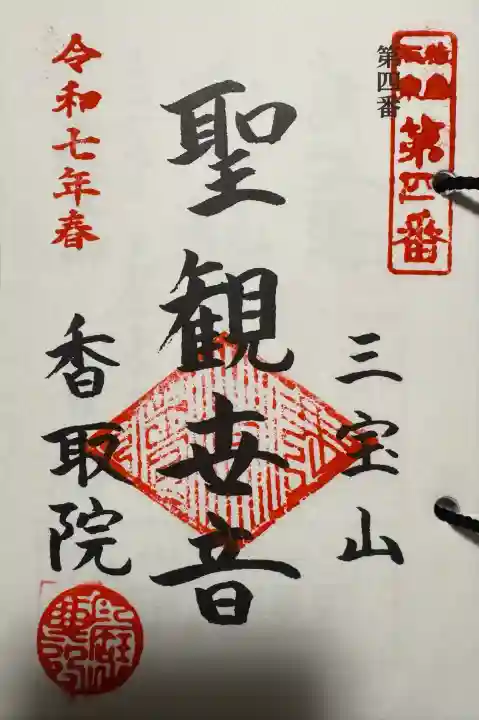 第四番
第四番
三宝山
聖観世音
令和七年春
香取院